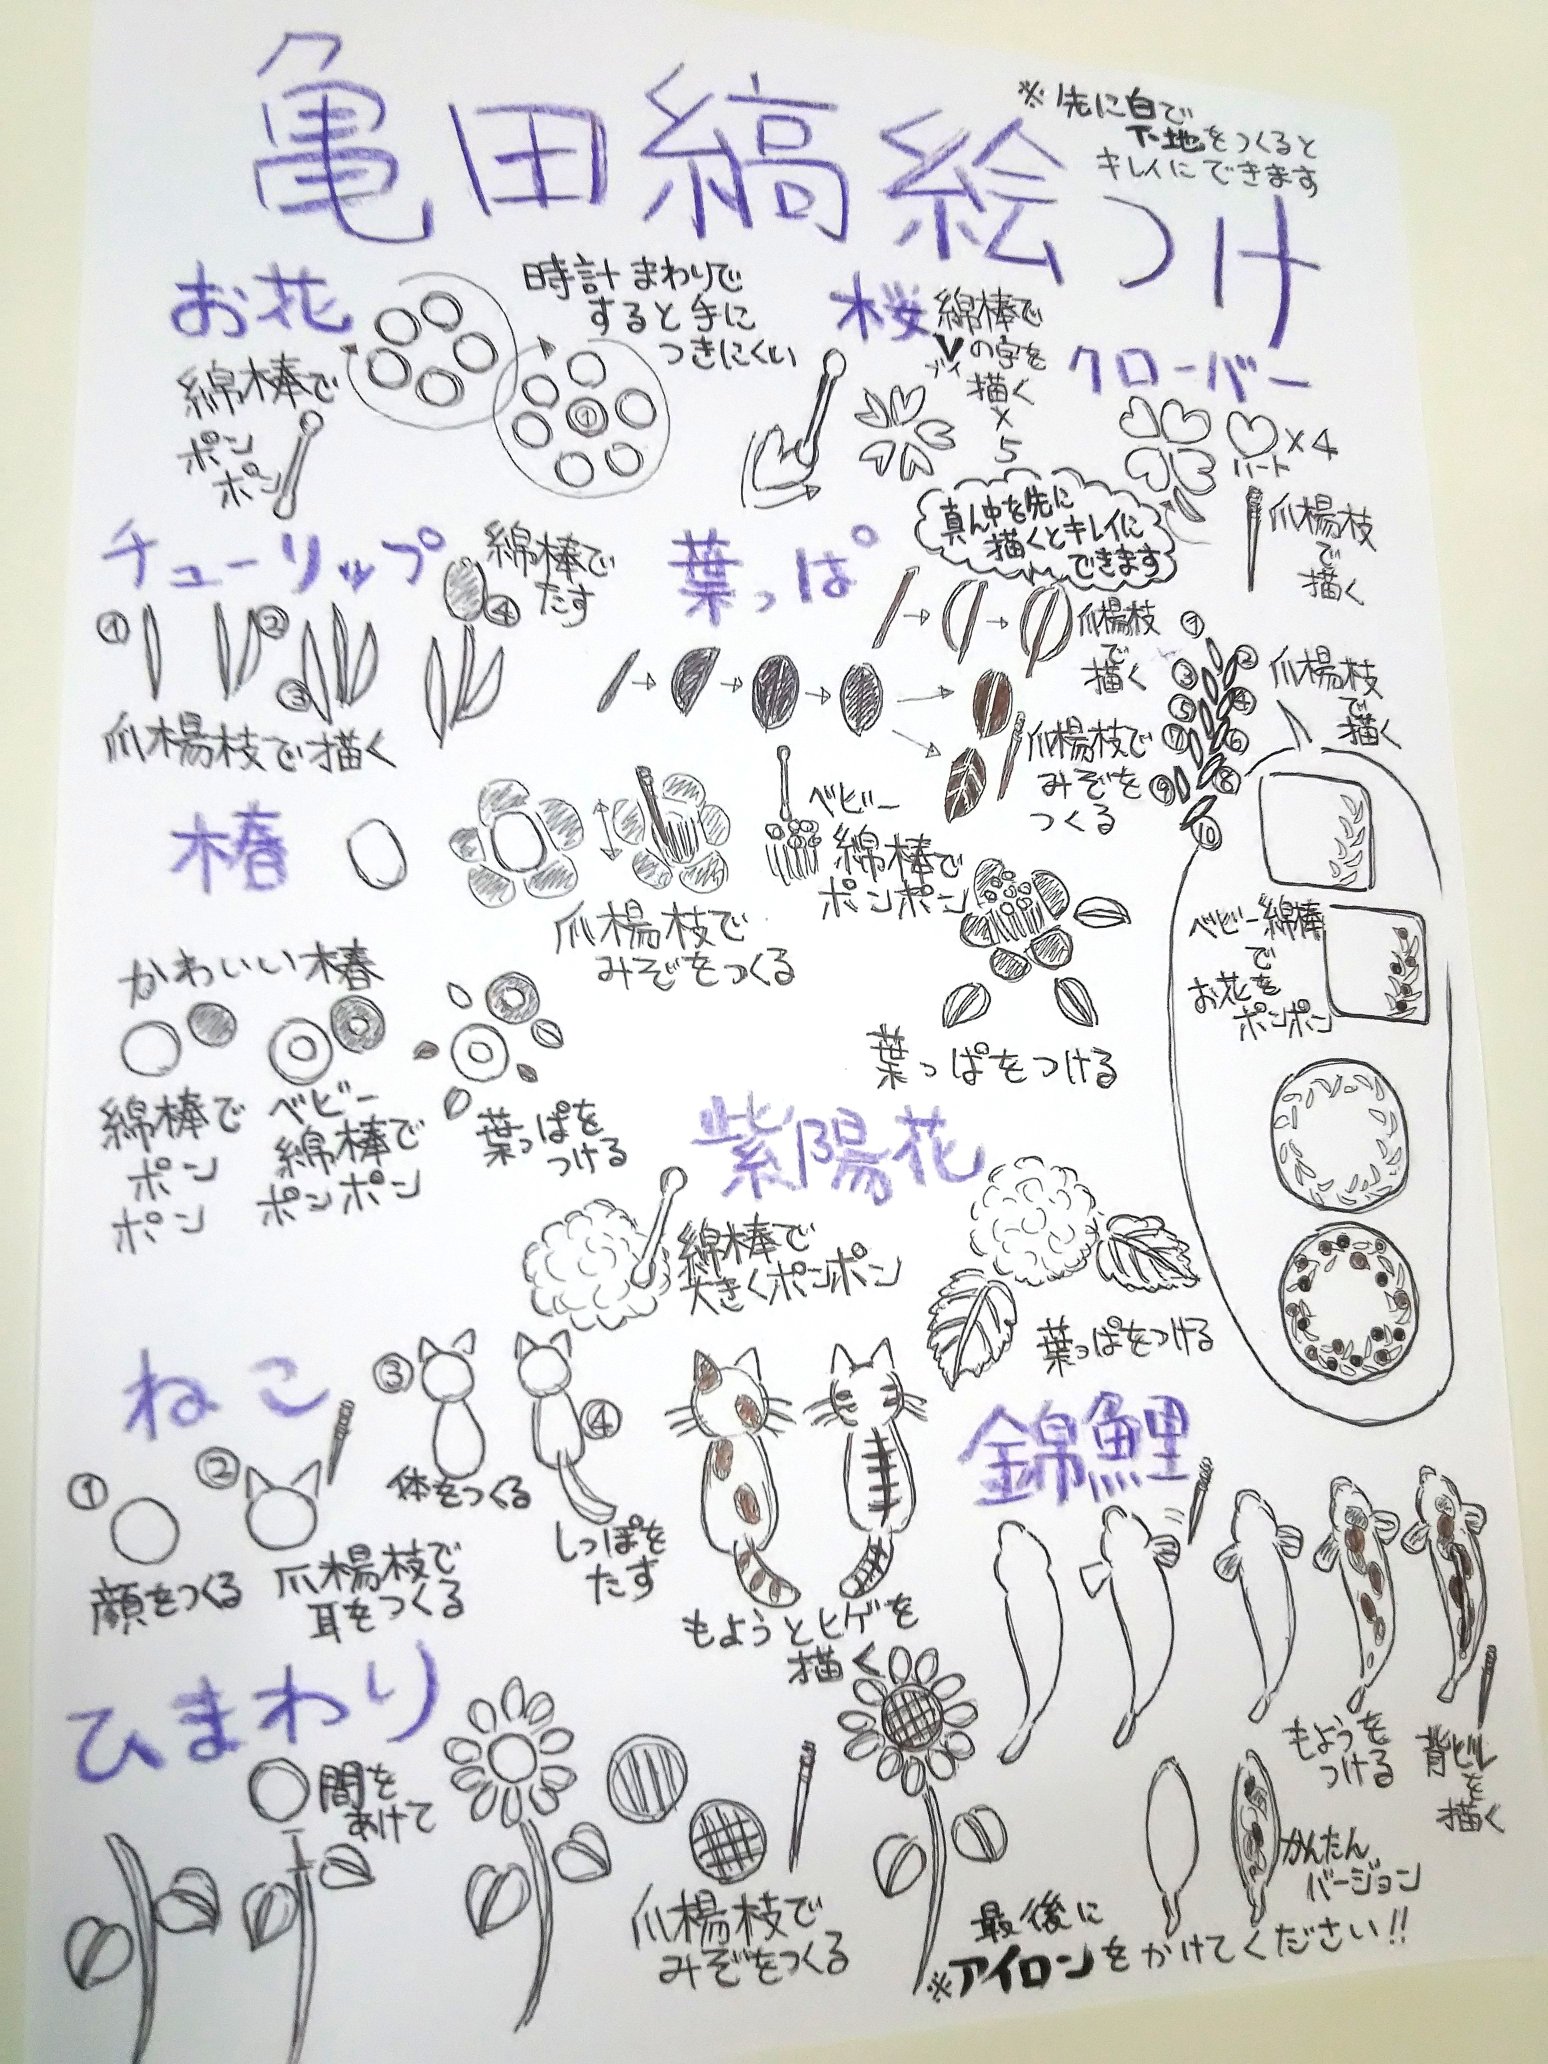 亀田縞絵つけ
※先に白で
下地をつくると
キレイにできます
お花
綿棒で
ポン
ポン
時計まわりで
すると手に
つきにくい
①
桜
綿棒で
Vの字を
ブイ
描く
×
5
クローバー
×4
ハート
爪楊枝
で
描く
チューリップ
①
②
③
④
綿棒で
たす
爪楊枝で描く
葉っぱ
真ん中を先に
描くとキレイに
できます
爪楊枝
で
描く
爪楊枝で
みぞを
つくる
①
②
③
④
⑤
⑥
⑦
⑧
⑨
⑩
爪楊枝
で
描く
ベビー綿棒
で
お花を
ポンポン
椿
爪楊枝で
みぞをつくる
ベビー
綿棒で
ポンポン
葉っぱをつける
かわいい椿
綿棒で
ポン
ポン
ベビー
綿棒で
ポンポン
葉っぱを
つける
紫陽花
綿棒で
大きくポンポン
葉っぱをつける
ねこ
①
顔をつくる
②
爪楊枝で
耳をつくる
③
体をつくる
④
しっぽを
たす
もようとヒゲを
描く
錦鯉
もようを
つける
背ビレ
を
描く
かんたん
バージョン
ひまわり
間を
あけて
爪楊枝で
みぞをつくる
最後に
※アイロンをかけてください!!